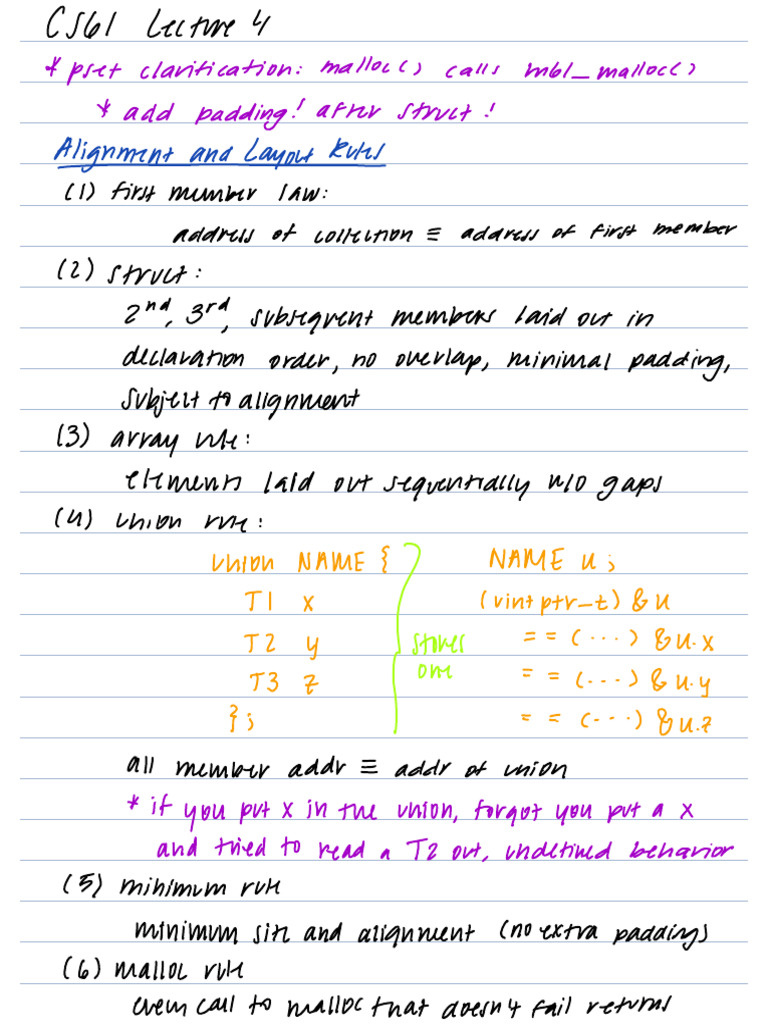 CS61 Lecture 4
* pset clarification: malloc() calls m61_malloc()
* add padding! after struct!
Alignment and Layout Rules
(1) first member law:
address of collection ≡ address of first member
(2) struct:
2nd, 3rd, subsequent members laid out in
declaration order, no overlap, minimal padding,
subject to alignment
(3) array rule:
elements laid out sequentially w/o gaps
(4) union rule:
union NAME {
T1 x
T2 y
T3 z
};
stores
one
NAME u;
(uintptr_t) &u
== (...) &u.x
== (...) &u.y
== (...) &u.z
all member addr ≡ addr of union
* if you put x in the union, forgot you put a x
and tried to read a T2 out, undefined behavior
(5) minimum rule
minimum size and alignment (no extra padding)
(6) malloc rule
every call to malloc that doesn't fail returns